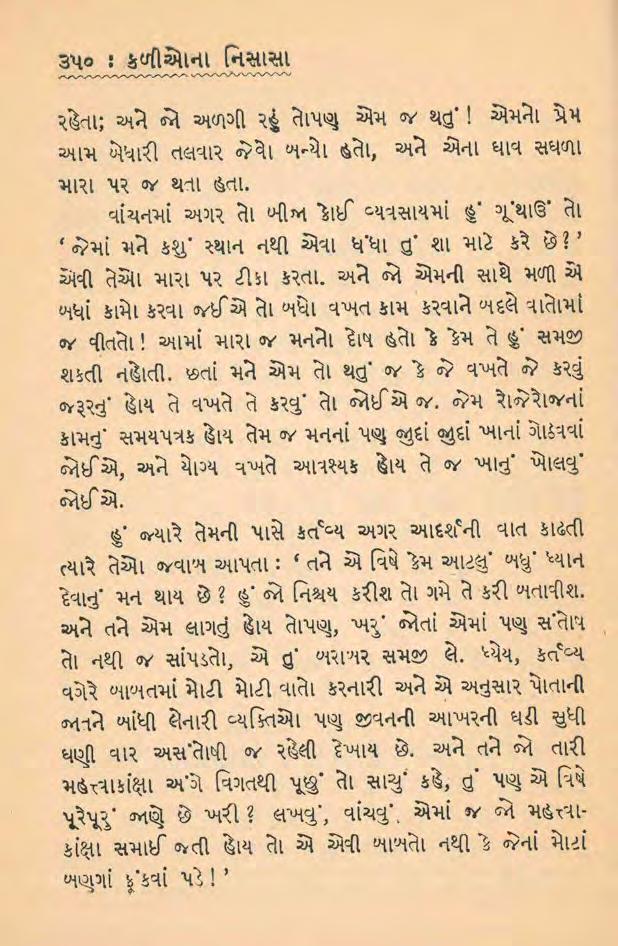 ૩૫૦ : કળીઓના નિસાસા
રહેતા; અને જો અળગી રહું તોપણ એમ જ થતું ! એમનો પ્રેમ
આમ બેધારી તલવાર જેવો બન્યો હતો, અને એના ઘાવ સઘળા
મારા પર જ થતા હતા.
વાંચનમાં અગર તો બીજા કોઈ વ્યવસાયમાં હું ગૂંથાઉં તો
‘ જેમાં મને કશું સ્થાન નથી એવા ધંધા તું શા માટે કરે છે ? ’
એવી તેઓ મારા પર ટીકા કરતા. અને જો એમની સાથે મળી એ
બધાં કામો કરવા જઈએ તો બધો વખત કામ કરવાને બદલે વાતોમાં
જ વીતતો ! આમાં મારા જ મનનો દોષ હતો કે કેમ તે હું સમજી
શકતી નહોતી. છતાં મને એમ તો થતું જ કે જે વખતે જે કરવું
જરૂરનું હોય તે વખતે તે કરવું તો જોઈએ જ. જેમ રોજેરોજનાં
કામનું સમયપત્રક હોય તેમ જ મનનાં પણ જુદાં જુદાં ખાનાં ગોઠવવાં
જોઈએ, અને યોગ્ય વખતે આવશ્યક હોય તે જ ખાનું ખોલવું
જોઈએ.
હું જ્યારે તેમની પાસે કર્તવ્ય અગર આદર્શની વાત કાઢતી
ત્યારે તેઓ જવાબ આપતા : ‘ તને એ વિષે કેમ આટલું બધું ધ્યાન
દેવાનું મન થાય છે ? હું જો નિશ્ચય કરીશ તો ગમે તે કરી બતાવીશ.
અને તને એમ લાગતું હોય તોપણ, ખરું જોતાં એમાં પણ સંતોષ
તો નથી જ સાંપડતો, એ તું બરાબર સમજી લે. ધ્યેય, કર્તવ્ય
વગેરે બાબતમાં મોટી મોટી વાતો કરનારી અને એ અનુસાર પોતાની
જાતને બાંધી લેનારી વ્યક્તિઓ પણ જીવનની આખરની ઘડી સુધી
ઘણી વાર અસંતોષી જ રહેલી દેખાય છે. અને તને જો તારી
મહત્ત્વાકાંક્ષા અંગે વિગતથી પૂછું તો સાચું કહે, તું પણ એ વિષે
પૂરેપૂરું જાણે છે ખરી ? લખવું, વાંચવું. એમાં જ જો મહત્ત્વા-
કાંક્ષા સમાઈ જતી હોય તો એ એવી બાબતો નથી કે જેનાં મોટાં
બણગાં ફૂંકવાં પડે ! ’